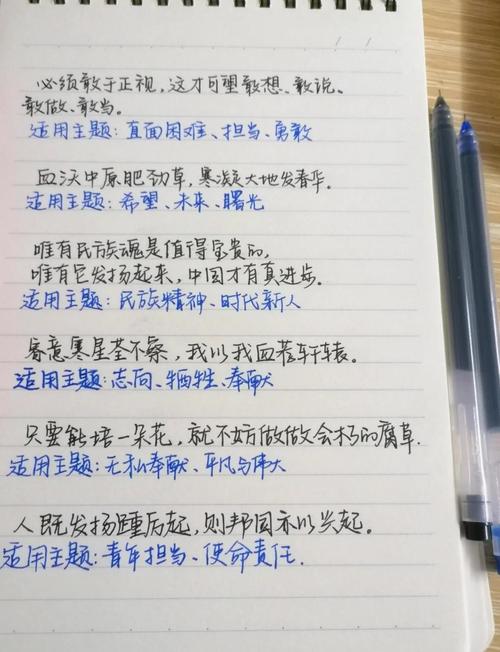 必须敢于正视，这才可望敢想、敢说、
敢做、敢当。
适用主题：直面困难、担当、勇敢
血沃中原肥劲草，寒凝大地发春华。
适用主题：希望、未来、曙光
唯有民族魂是值得宝贵的，
唯有它发扬起来，中国才有真进步。
适用主题：民族精神、时代新人
寄意寒星荃不察，我以我血荐轩辕。
适用主题：志向、牺牲、奉献
只要能培一朵花，就不妨做做会朽的腐草.
适用主题：无私奉献、平凡与伟大
人既发扬踵厉起，则邦国亦以兴起。
适用主题：青年担当、使命责任.